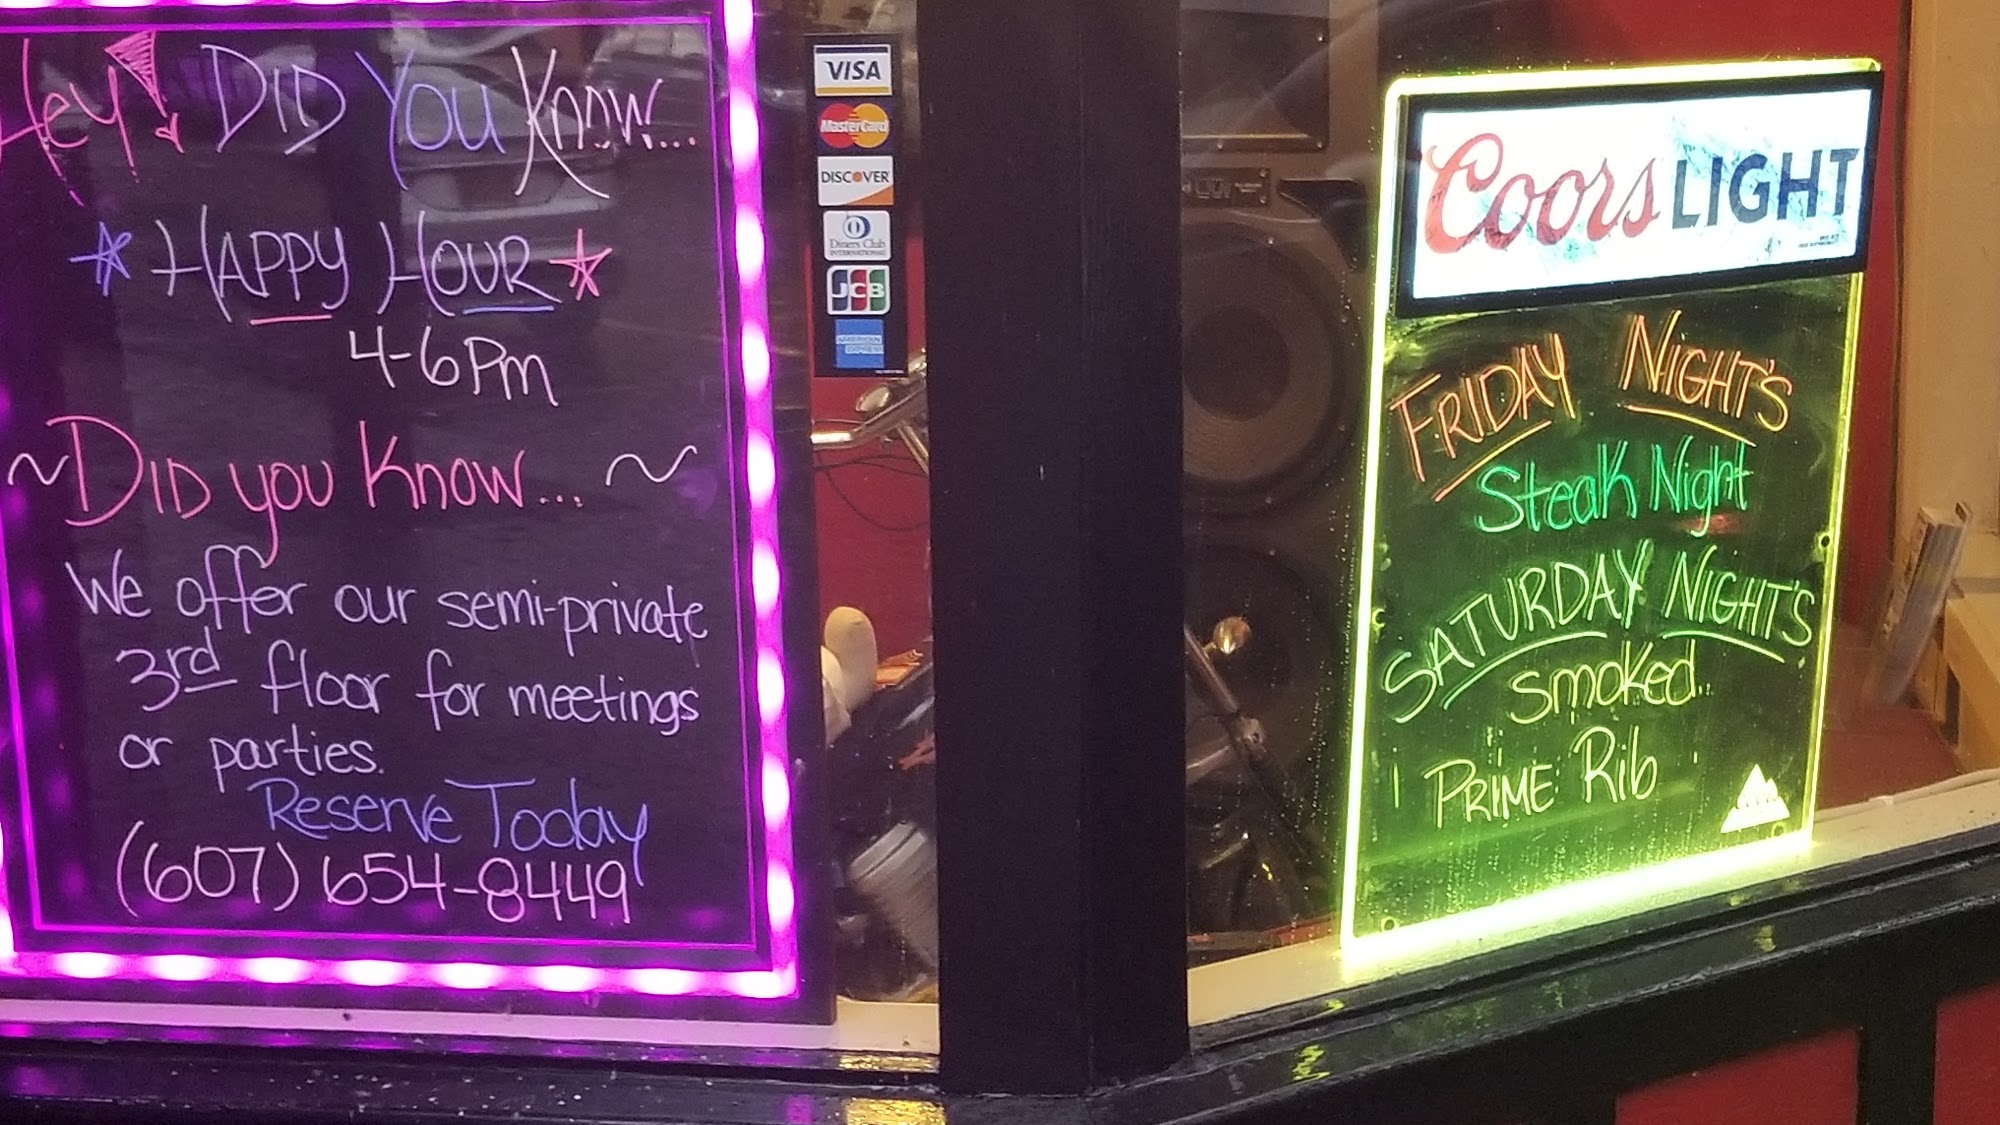 Hey! DID You Know...
HAPPY HOUR
4-6 Pm
~DID you Know... ~
We offer our semi-private
3rd floor for meetings
or parties.
Reserve Today
(607) 654-8449
VISA
MasterCard
DISCOVER
Diners Club
INTERNATIONAL
JCB
AMERICAN
EXPRESS
Coors LIGHT
FRIDAY NIGHT'S
Steak Night
SATURDAY NIGHT'S
Smoked
PRIME Rib